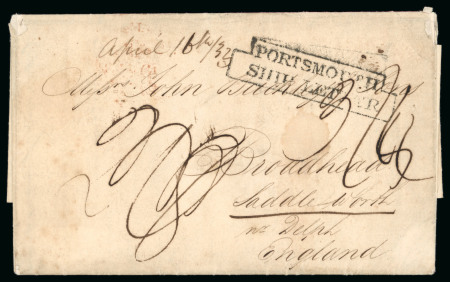 April 16th/32
PORTSMOUTH
SHIP LETTER
Messrs John
Broadhead
Saddleworth
nr Delph
England